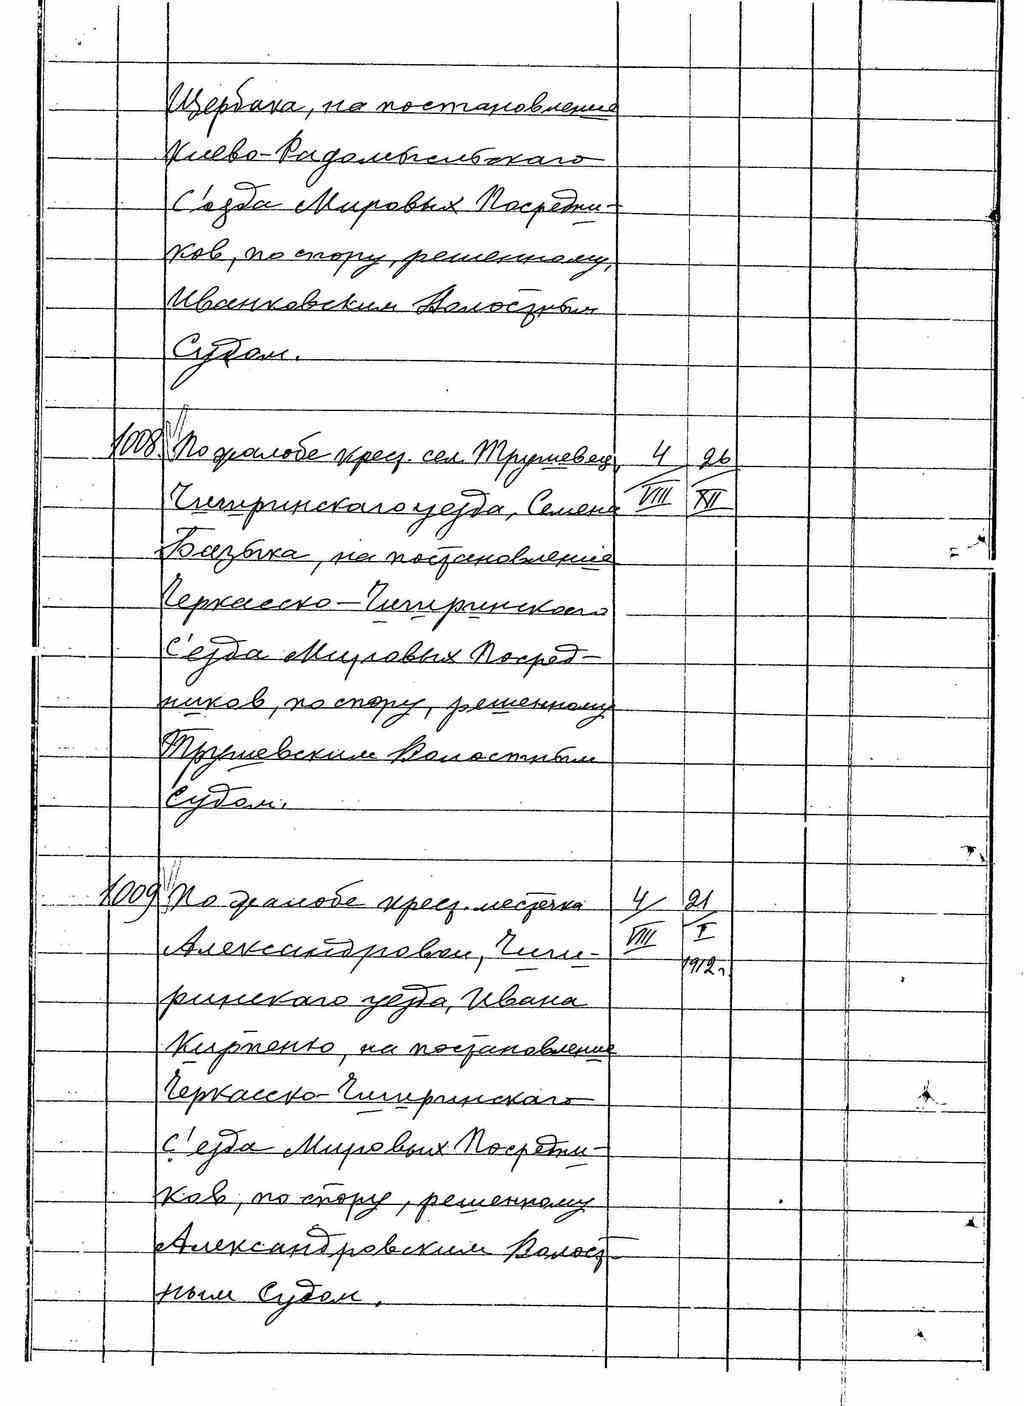 Щербака, на постановление
Киево-Радомысльского
С'езда Мировых Посредни-
ков, по спору, решенному,
Иванковским Волостным
Судом.
1008. По жалобе крест. сел. Трушевец, 4 26
Чигиринского уезда, Семена VIII XII
Базыка, на постановление
Черкасско-Чигиринского
С'езда Мировых Посред-
ников, по спору, решенному
Трушевским Волостным
Судом.
1009 По жалобе крест. местечка 4 21
Александровки, Чиги- VIII I
ринского уезда, Ивана 1912 г.
Кирпенко, на постановление
Черкасско-Чигиринскаго
С'езда Мировых Посредни-
ков, по спору, решенному
Александровским Волост-
ным Судом.